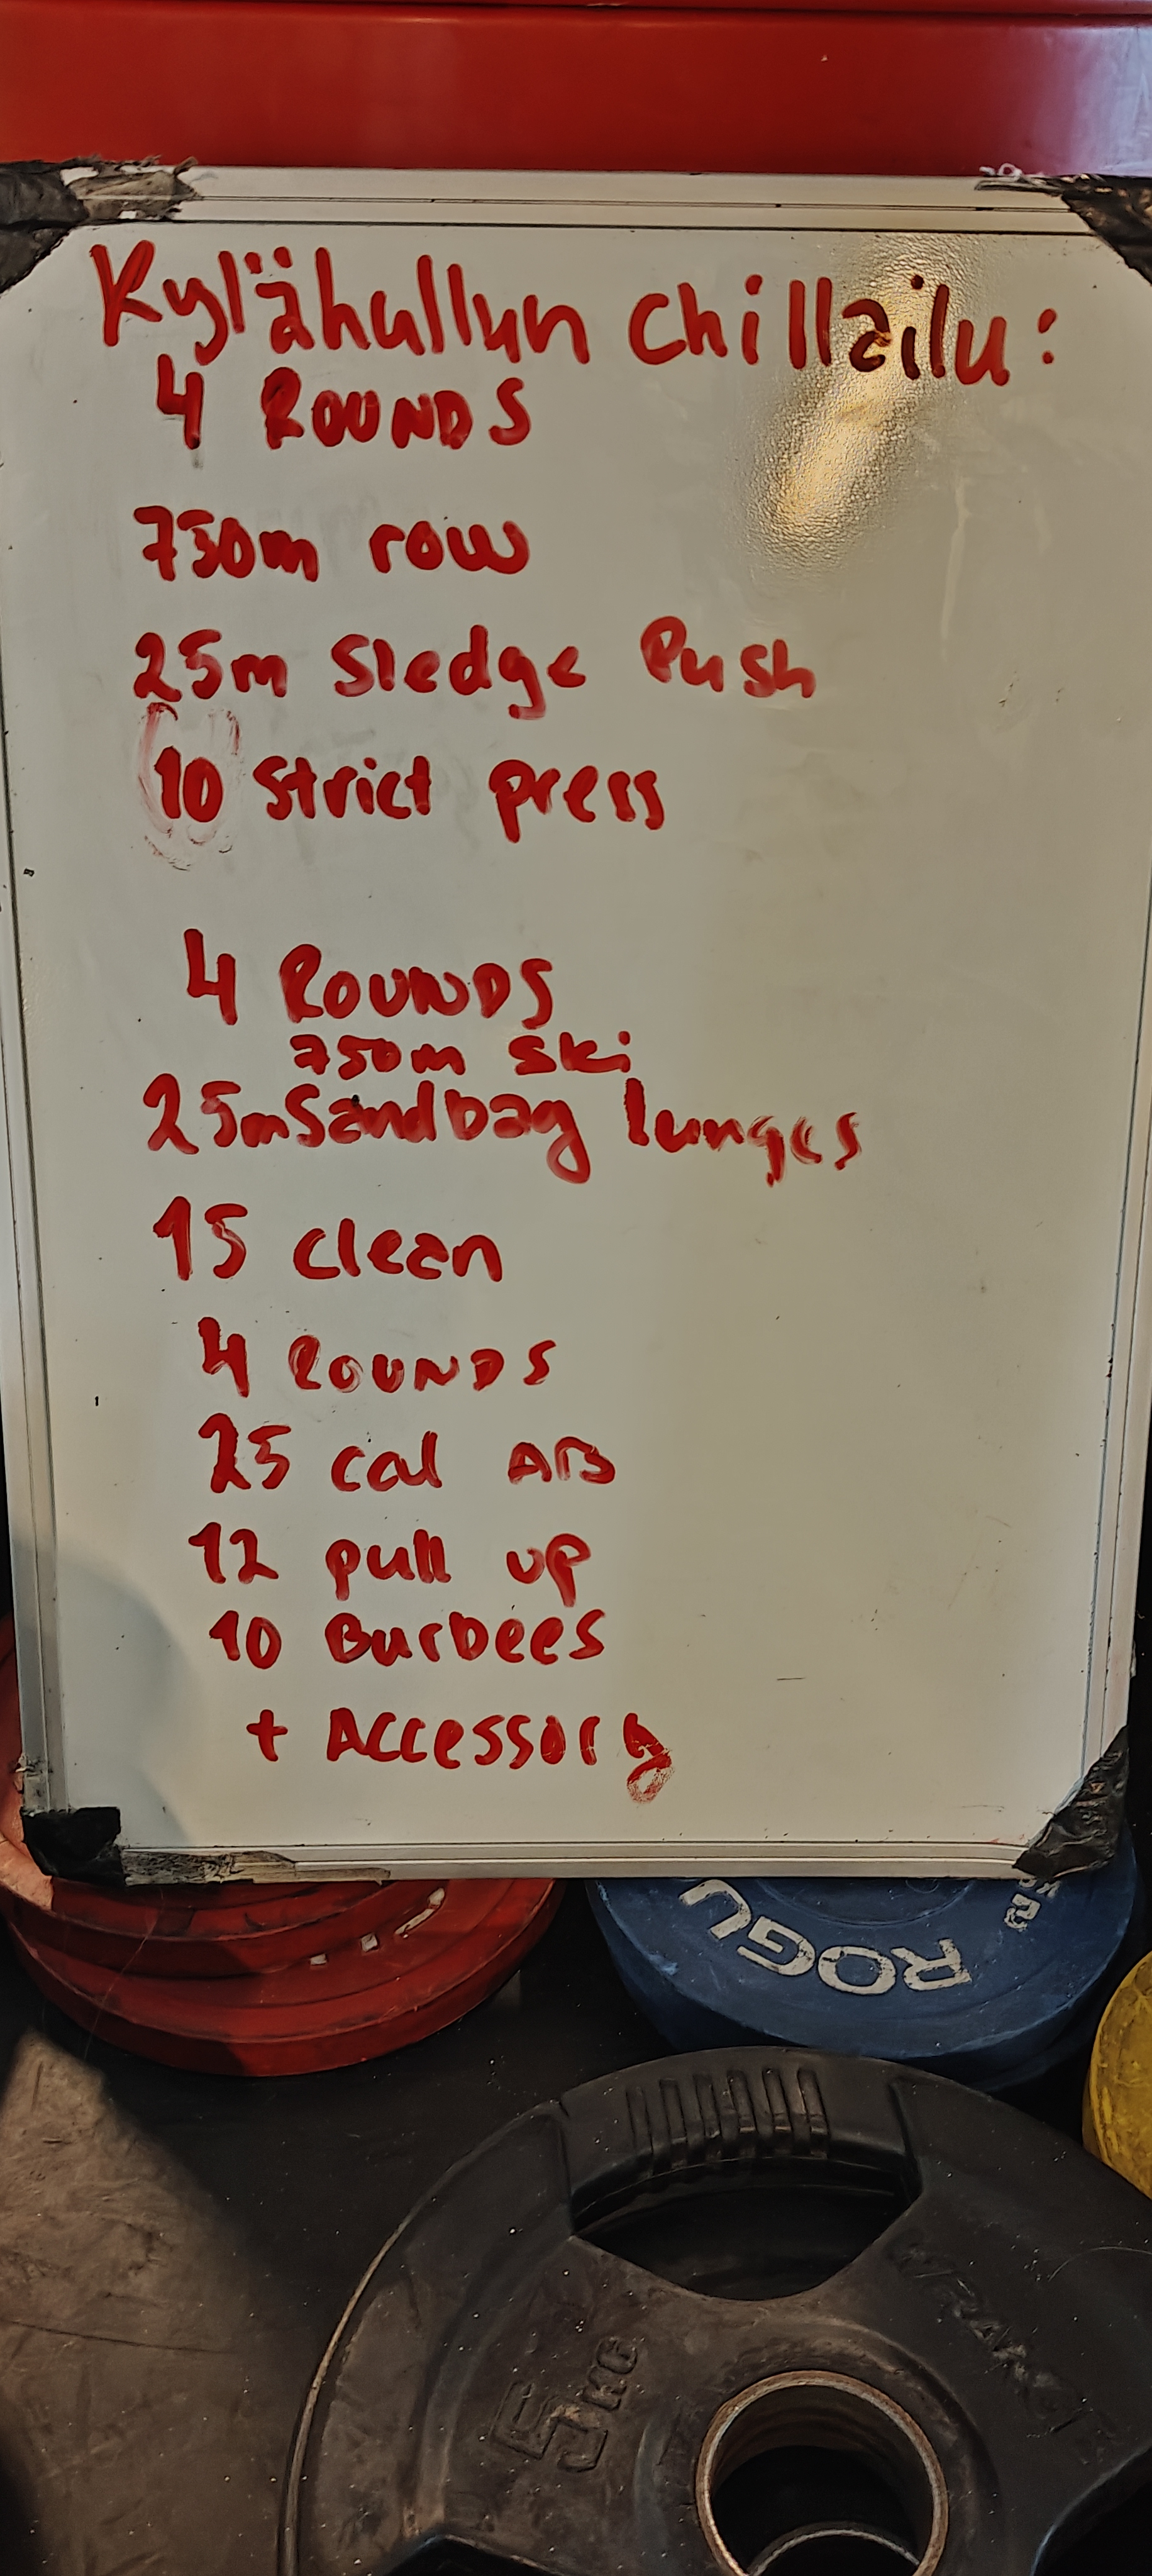 Kylähullun chillailu:
4 ROUNDS
750m row
25m Sledge Push
10 strict press
4 ROUNDS
750m ski
25m Sandbag lunges
15 clean
4 ROUNDS
25 cal AB
12 pull up
10 Burbees
+ Accessory
ROGU
5 KG